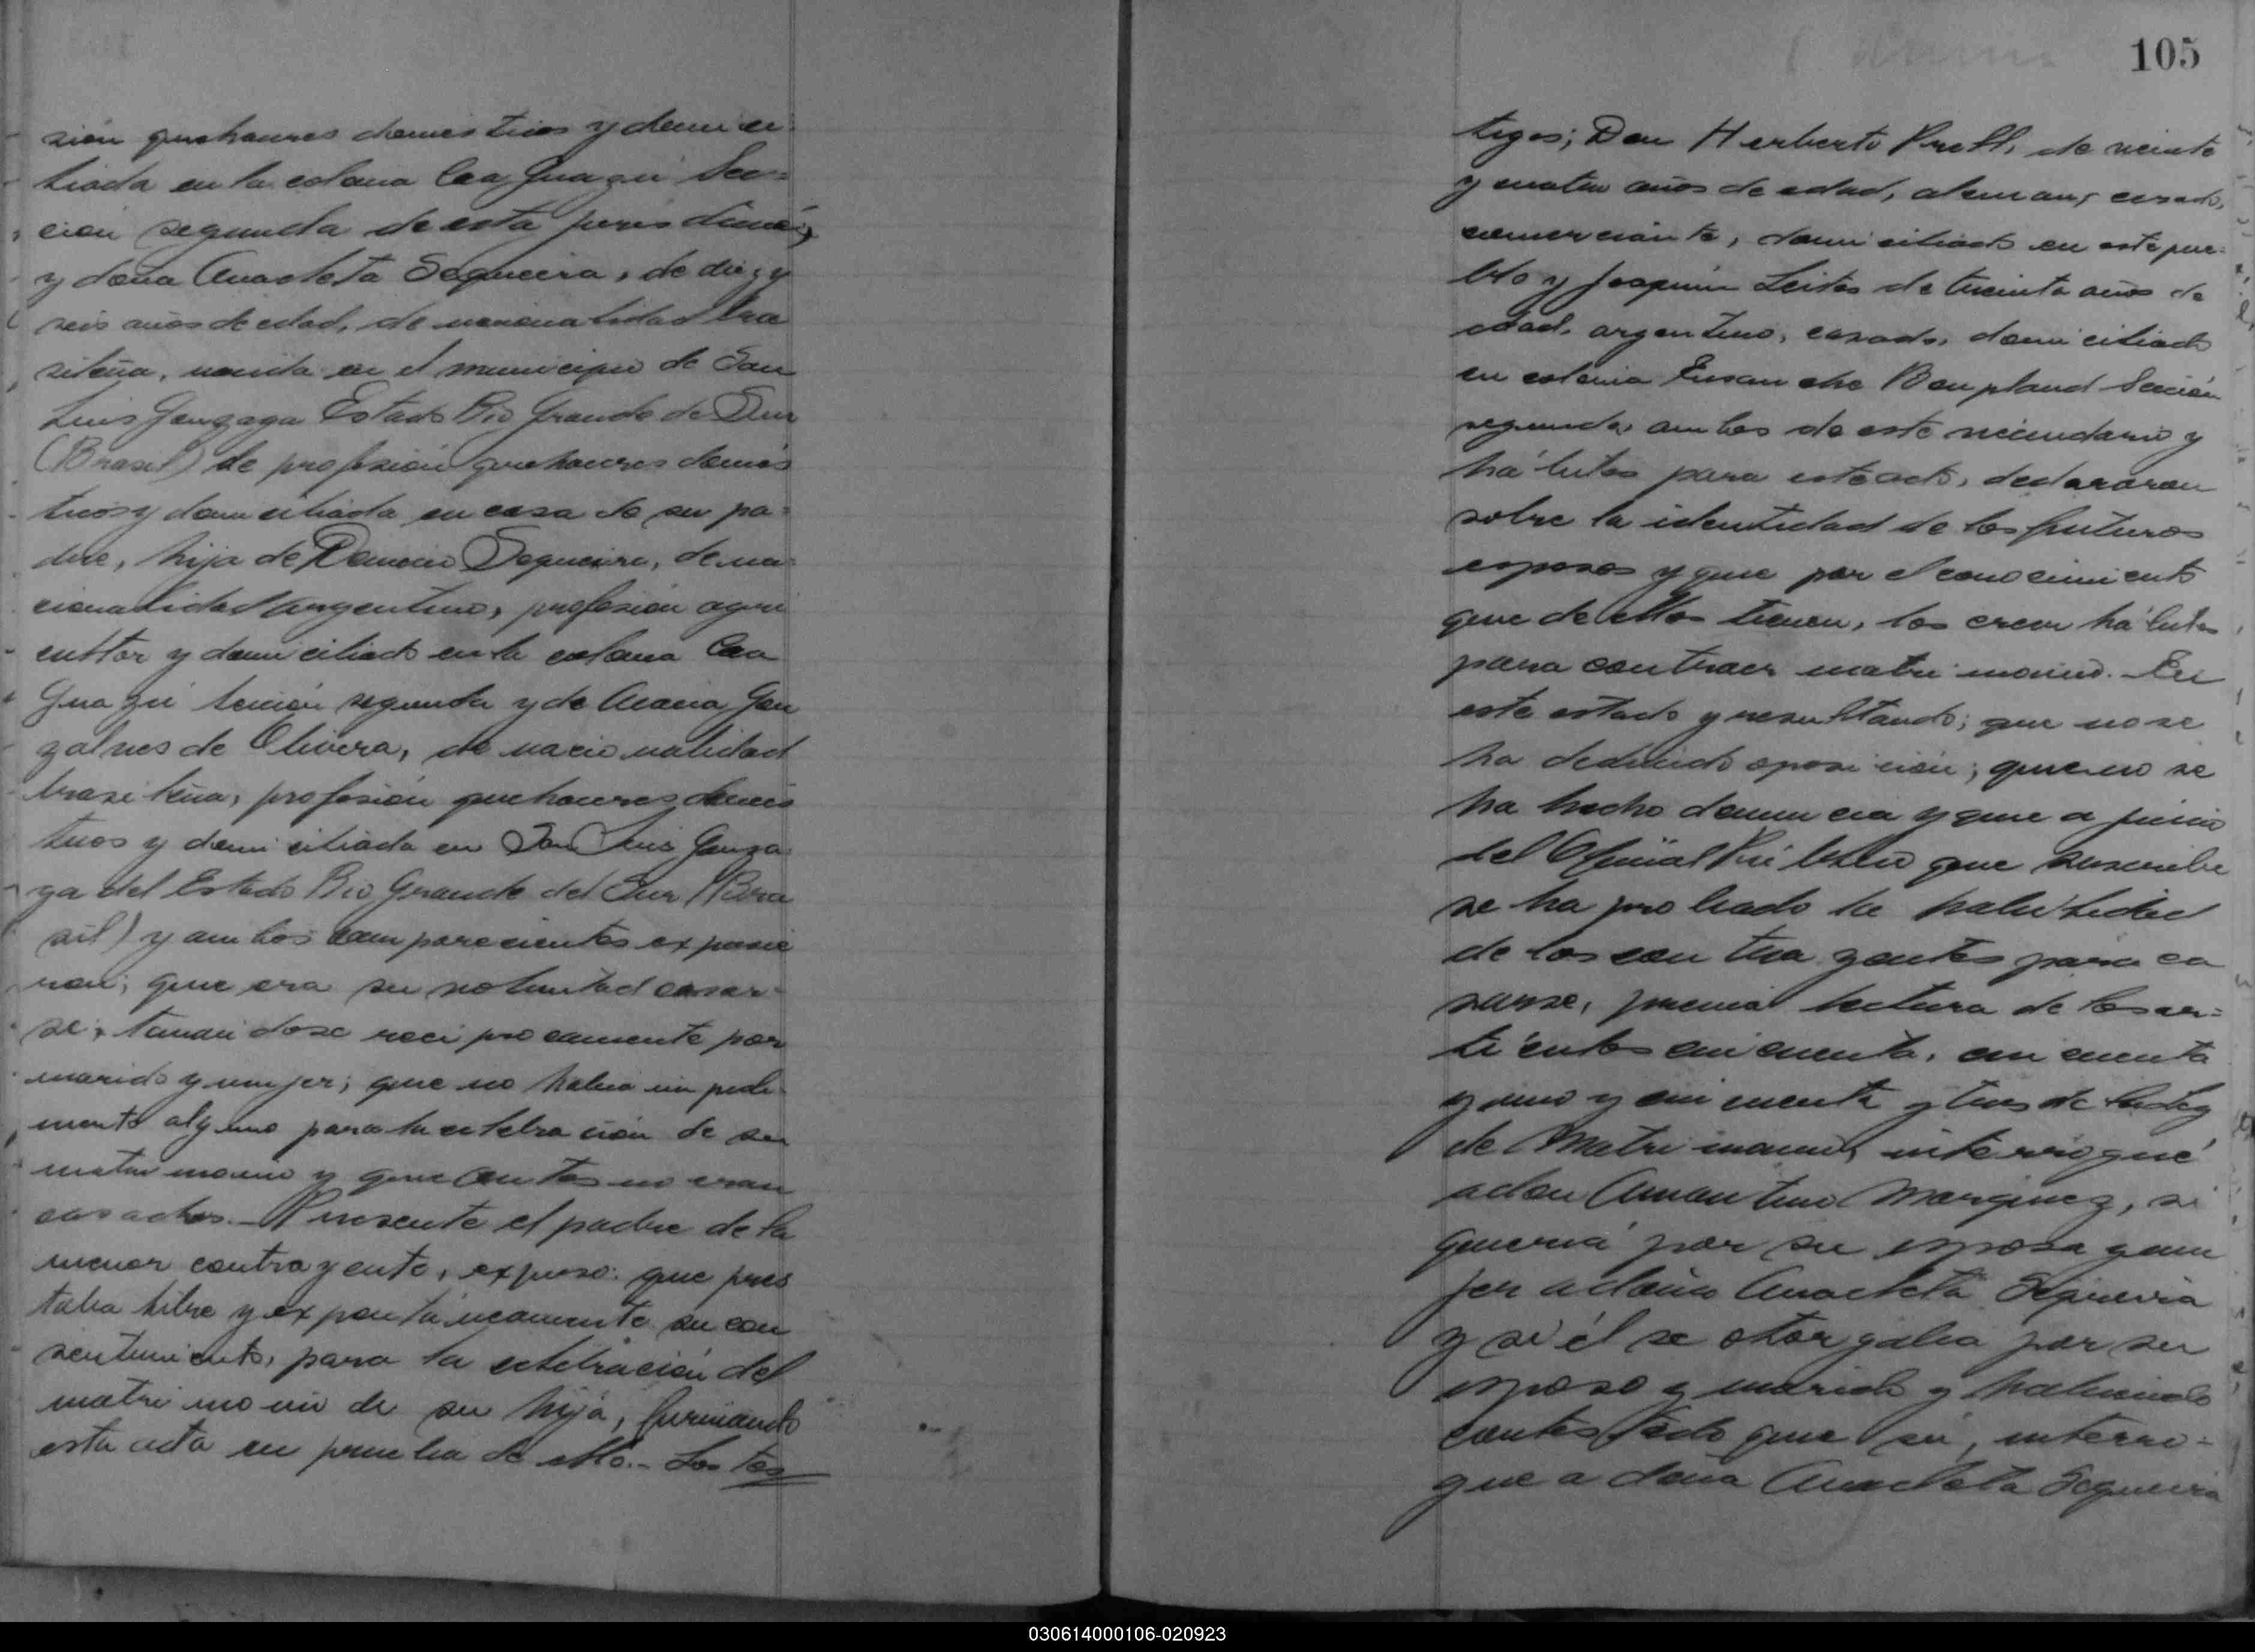 sión quehaceres domésticos y domici-
liada en la colonia Caa Guazú Sec=
ción segunda de esta jurisdicción,
y doña Anacleta Sequeira, de diez y
seis años de edad, de nacionalidad bra
sileña, nacida en el municipio de San
Luis Gonzaga Estado Rio Grande do Sur
(Brasil) de profesión quehaceres domés
ticos y domiciliada en casa de su pa=
dre, hija de Sequeira, de na=
cionalidad argentino, profesión agri
cultor y domiciliado en la colonia Caa
Guazú sección segunda y de Maria Gon
zalves de Olivera, de nacionalidad
brasileña, profesión quehaceres domés
ticos y domiciliada en San Luis Gonza
ga del Estado Rio Grande del Sur (Bra
sil) y ambos comparecientes expusie
ron; que era su voluntad casar-
se, tomandose reciprocamente por
marido y mujer; que no habia impedi-
mento alguno para la celebración de su
matrimonio y que antes no eran
casados.- Presente el padre de la
menor contrayente, expuso: que pres
taba libre y expontáneamente su con
sentimiento, para la celebración del
matrimonio de su hija, firmando
esta acta en prueba de ello.- Los tes
105
tigos; Don Herberto de veinte
y cuatro años de edad, aleman, casado,
comerciante, domiciliado en este pue=
blo y Joaquin Leites de treinta años de
edad, argentino, casado, domiciliado
en colonia Ensanche Bonpland Sección
segunda, ambos de este vecindario y
hábiles para este acto, declararon
sobre la identidad de los futuros
esposos y que por el conocimiento
que de ellos tienen, los creen hábiles
para contraer matrimonio.- En
este estado y resultando; que no se
ha deducido oposición; que no se
ha hecho denuncia y que a juicio
del Oficial Público que suscribe
se ha probado la habilidad
de los contrayentes para ca
sarse, previa lectura de los ar=
tículos cincuenta, cincuenta
y uno y cincuenta y tres de la ley
de Matrimonio, interrogué
a don Amantino Marquez, si
queria por su esposa y mu
jer a doña Anacleta Sequeira
y si él se otorgaba por su
esposo y marido y habiendo
contestado que si, interro-
gue a doña Anacleta Sequeira
030614000106-020923